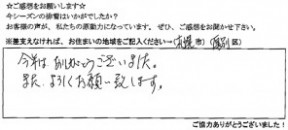 ☆ご感想をお願いします☆
今シーズンの排雪はいかがでしたか?
お客様の声が、私たちの原動力になっています。ぜひ、ご感想をお聞かせ下さい。
※差支えなければ、お住まいの地域をご記入ください→(札幌市)(西区)
今年はありがとうございました。
また、よろしくお願い致します。
ご協力ありがとうございました!